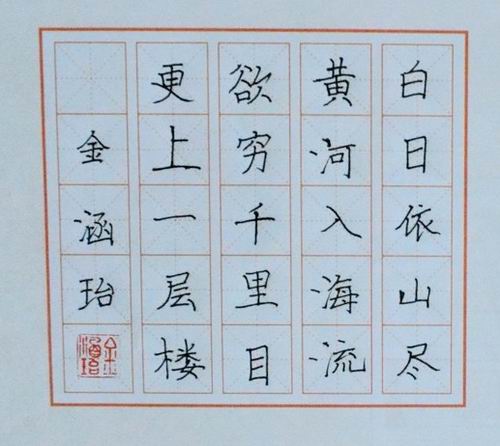 白日依山尽
黄河入海流
欲穷千里目
更上一层楼
金涵珆